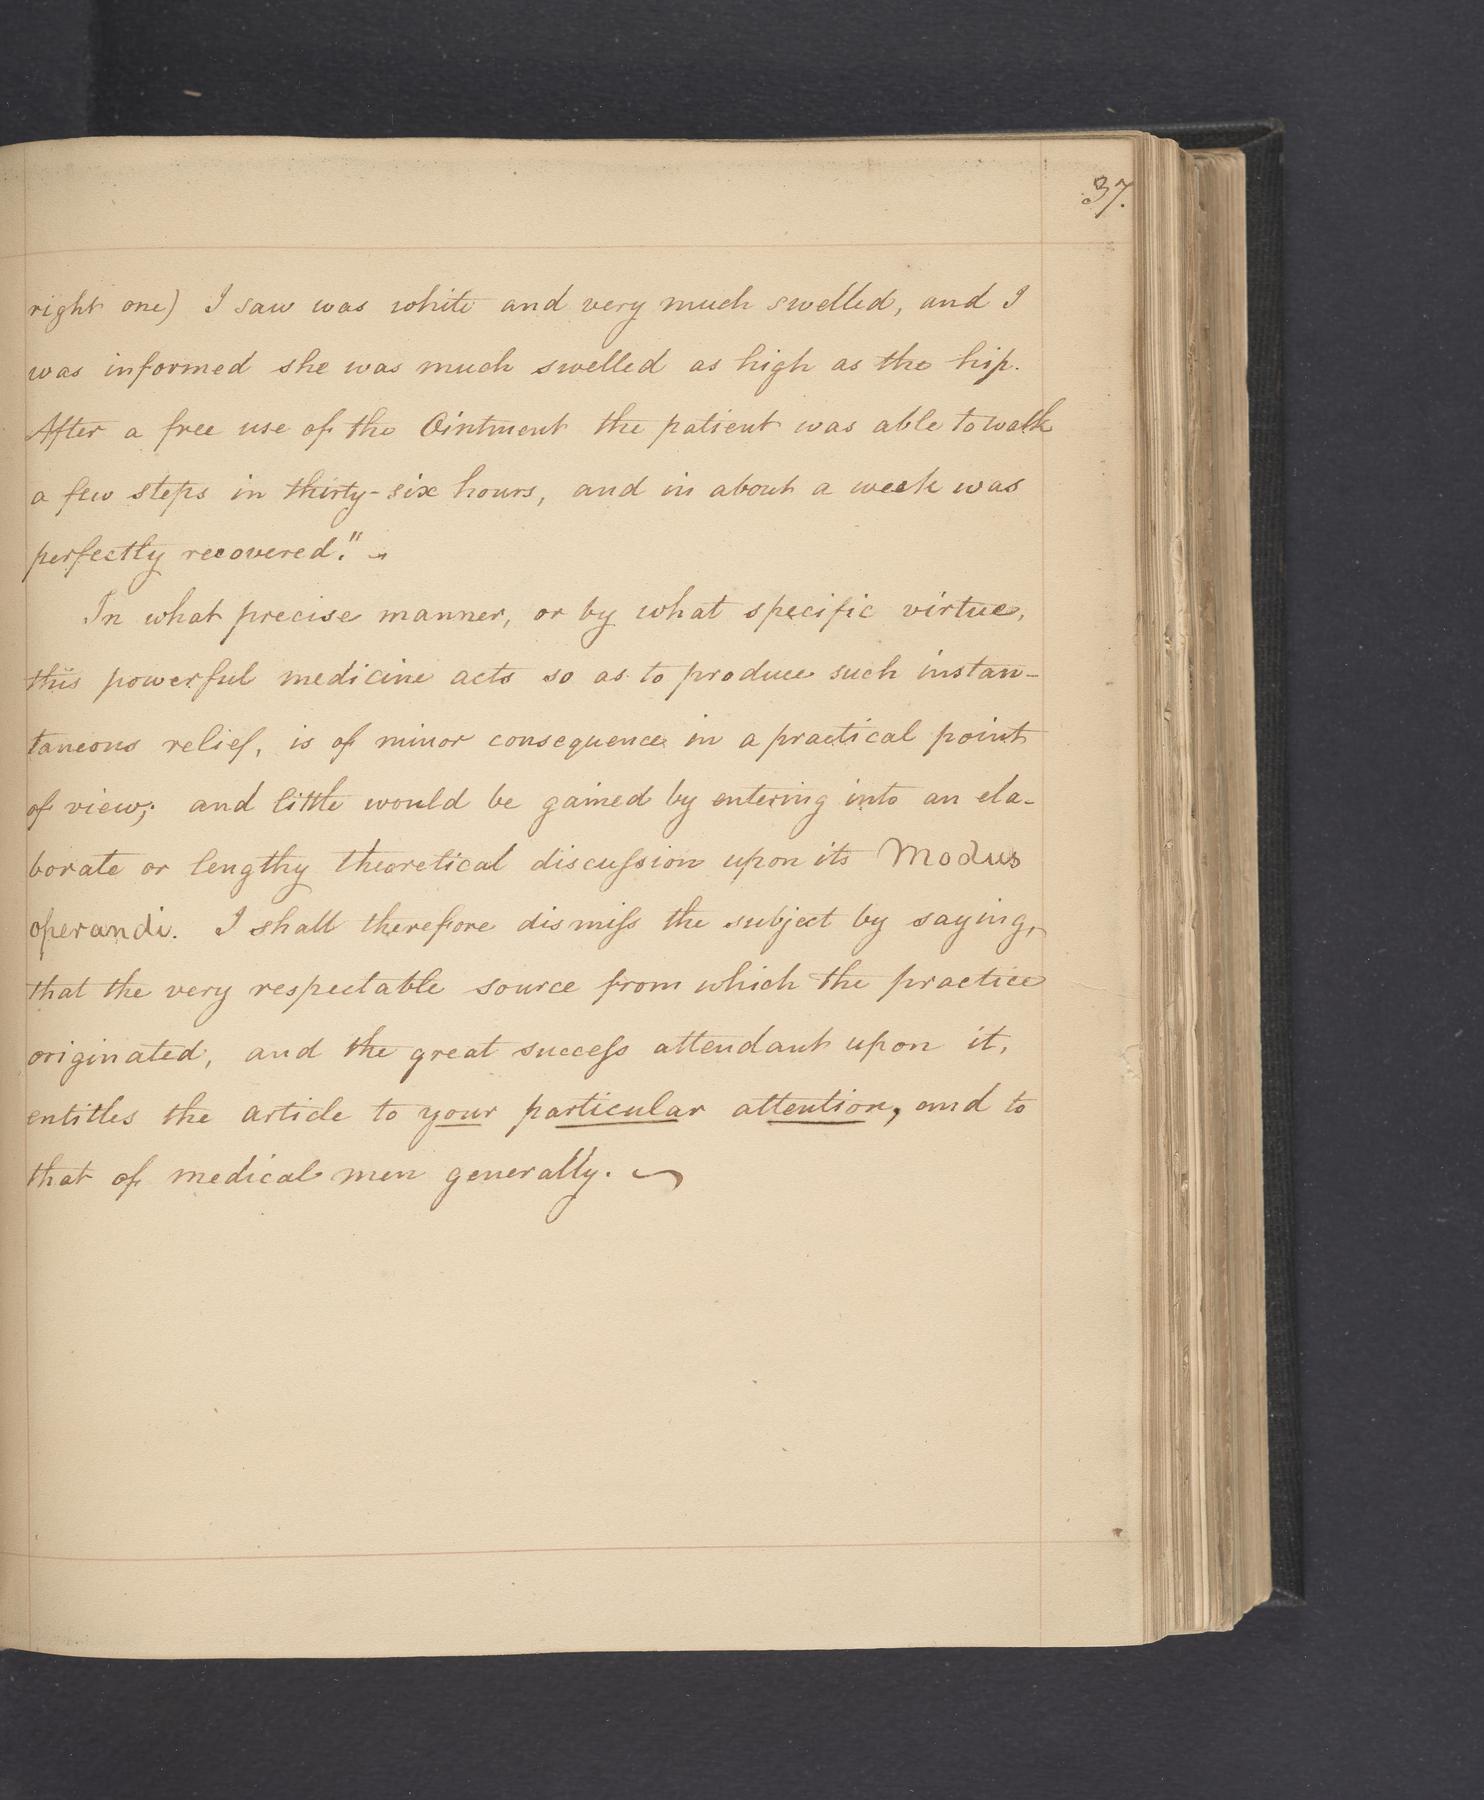 37.
right one) I saw was white and very much swelled, and I
was informed she was much swelled as high as the hip.
After a free use of the Ointment the patient was able to walk
a few steps in thirty-six hours, and in about a week was
perfectly recovered."
In what precise manner, or by what specific virtue,
this powerful medicine acts so as to produce such instan-
taneous relief, is of minor consequence in a practical point
of view; and little would be gained by entering into an ela-
borate or lengthy theoretical discuſsion upon its Modus
operandi. I shall therefore dismiſs the subject by saying,
that the very respectable source from which the practice
originated, and the great succeſs attendant upon it,
entitles the article to your particular attention, and to
that of medical men generally.